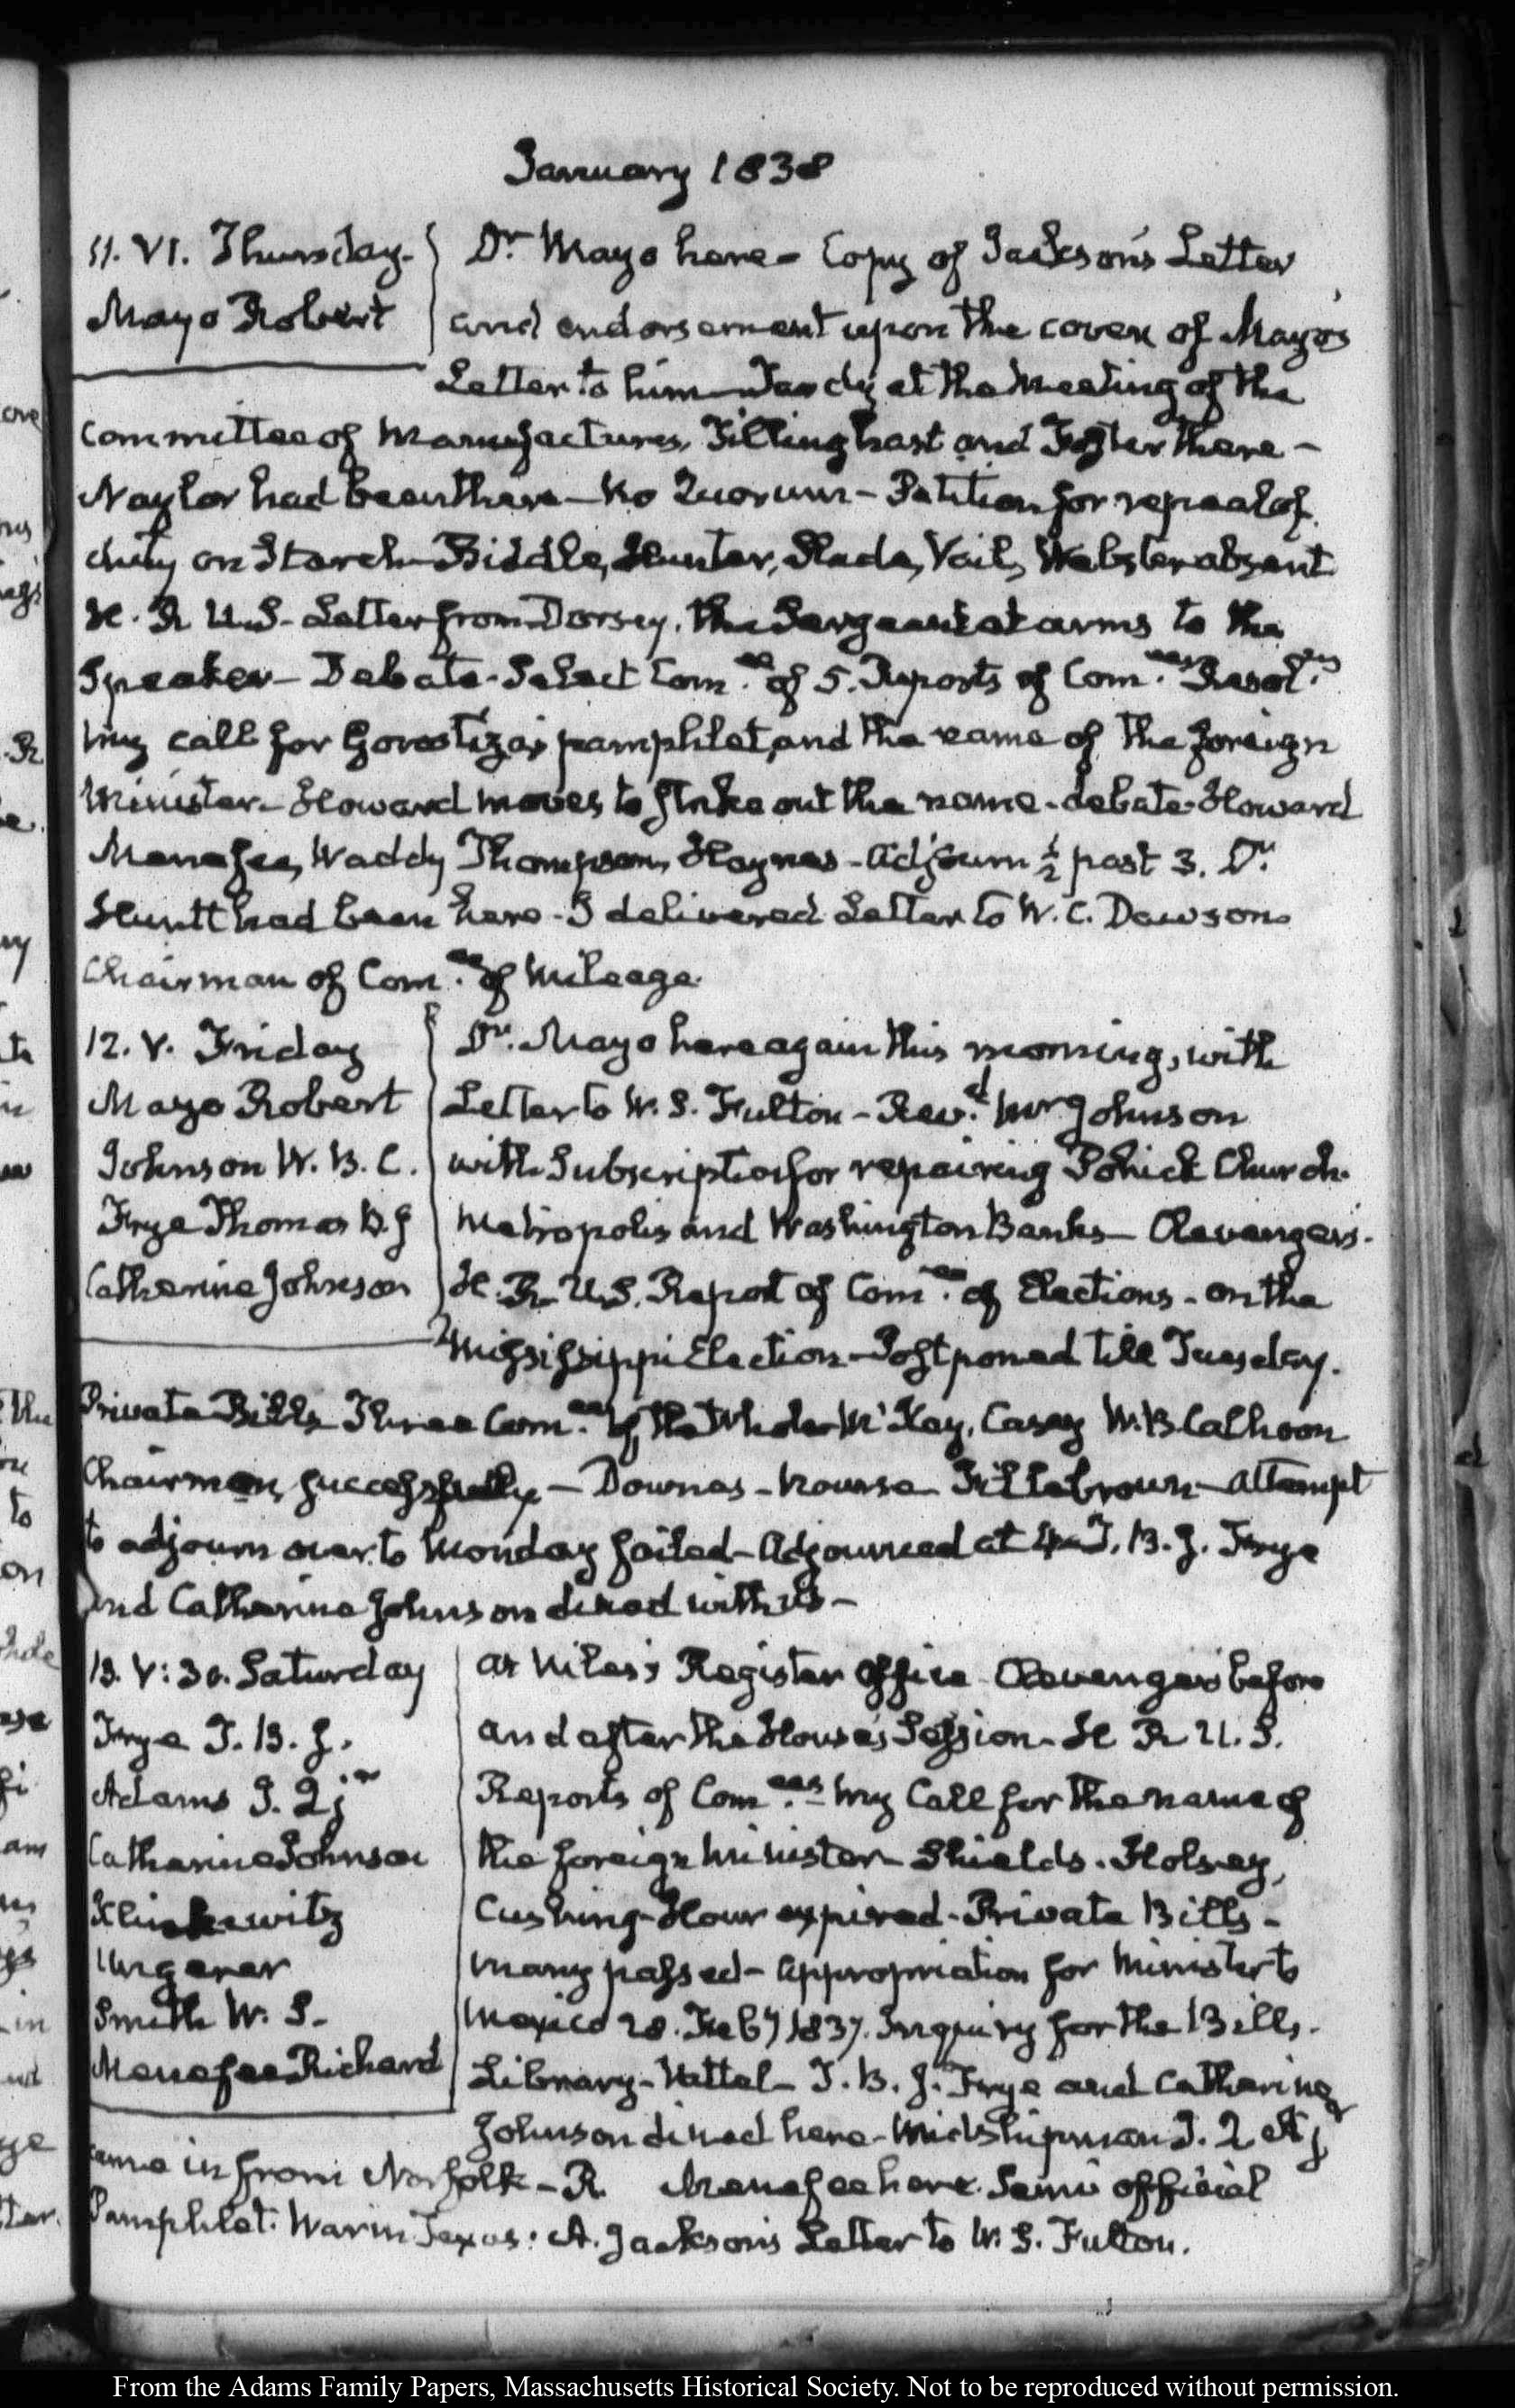 January 1838
11. VI. Thursday.
Mayo Robert
Dr. Mayo here - Copy of Jackson's Letter
and endorsement upon the cover of Mayo's
Letter to him - Tardy at the Meeting of the
Committee of Manufactures, Tillinghast and Foster there -
Naylor had been there - No Quorum - Petition for repeal of
duty on Starch - Biddle, Hunter, Slade, Vail, Webster absent
H. R. U.S. - Letter from Dorsey, the Sergeant at arms to the
Speaker - Debate - Select Com.ee of 5. Reports of Com.ees Resol.ns
my call for Gorostiza's pamphlet, and the name of the foreign
Minister - Howard moves to strike out the name - debate - Howard
Menefee, Waddy Thompson, Haynes - Adjourn ½ past 3. Dr.
Huntt had been here - I delivered Letter to W. C. Dawson
Chairman of Com.ee of Mileage.
12. V. Friday
Mayo Robert
Johnson W. B. C.
Frye Thomas B. J
Catherine Johnson
Dr. Mayo here again this morning, with
Letter to W. S. Fulton - Rev.d Mr Johnson
with Subscription for repairing Pohick Church.
Metropolis and Washington Banks - Clevenger's.
H. R. U.S. Report of Com.ee of Elections - on the
Mississippi Election - Postponed till Tuesday.
Private Bills Three Com.ees of the Whole McKay, Casey W. B Calhoon
Chairmen, successively - Downes - Nourse Fillebrown - attempt
to adjourn over to Monday failed - Adjourned at 4 - T. B. J. Frye
and Catherine Johnson dined with us -
13. V:30. Saturday
Frye T. B. J.
Adams J. Q jr
Catharine Johnson
Ungerer
Smith W. S.
Menefee Richard
At Niles's Register Office Clevenger's before
and after the House's Session - H R U. S.
Reports of Com.ees - My Call for the name of
the foreign minister - Shields. Holsey,
Cushing - Hour expired - Private Bills -
many passed - appropriation for Minister to
Mexico 28. Feby 1837. Inquiry for the Bills.
Library - Vattel - T. B. J. Frye and Catherine
Johnson dined here - Midshipman J. Q A j
came in from Norfolk - R Menefee here. Semi official
Pamphlet. War in Texas: A. Jackson's Letter to W. S. Fulton.
From the Adams Family Papers, Massachusetts Historical Society. Not to be reproduced without permission.